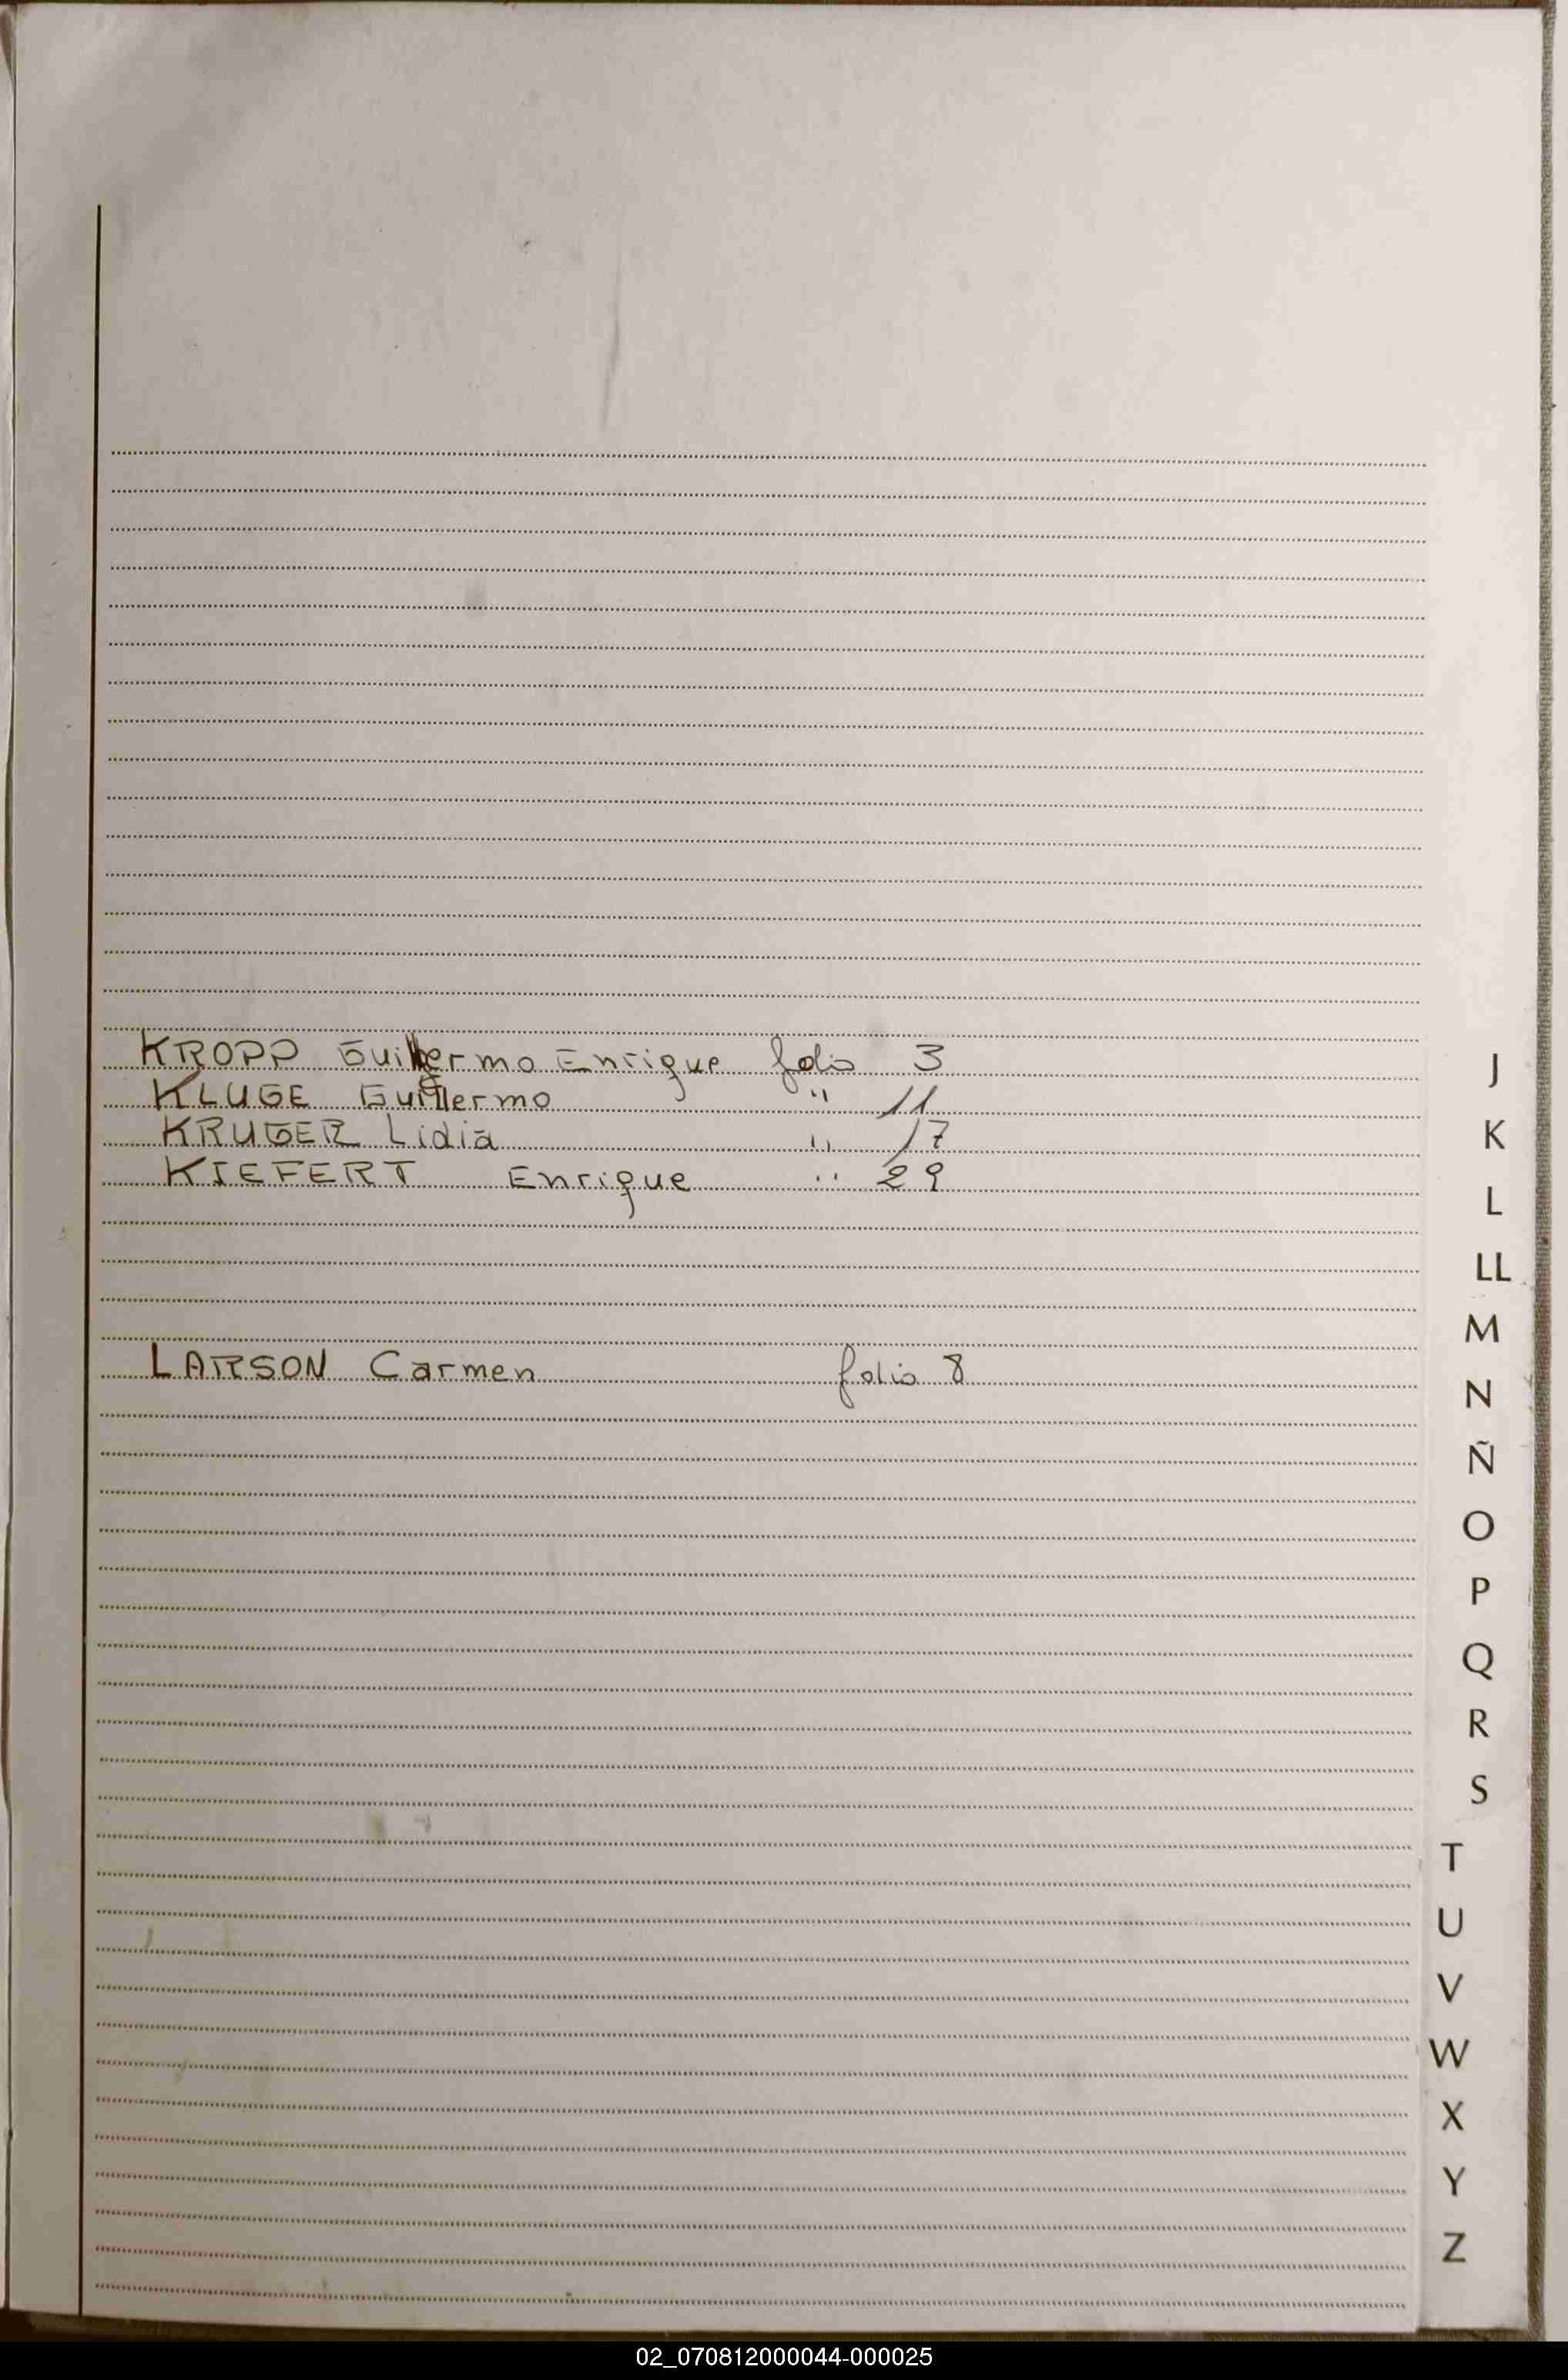 KROPP Guillermo Enrique folio 3
KLUGE Guillermo " 11
KRUGER Lidia " 17
KIEFERT Enrique " 29
LARSON Carmen folio 8
J
K
L
LL
M
N
Ñ
O
P
Q
R
S
T
U
V
W
X
Y
Z
02_070812000044-000025